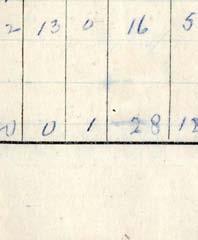 2 13 0 16 5
0 0 1 28 12